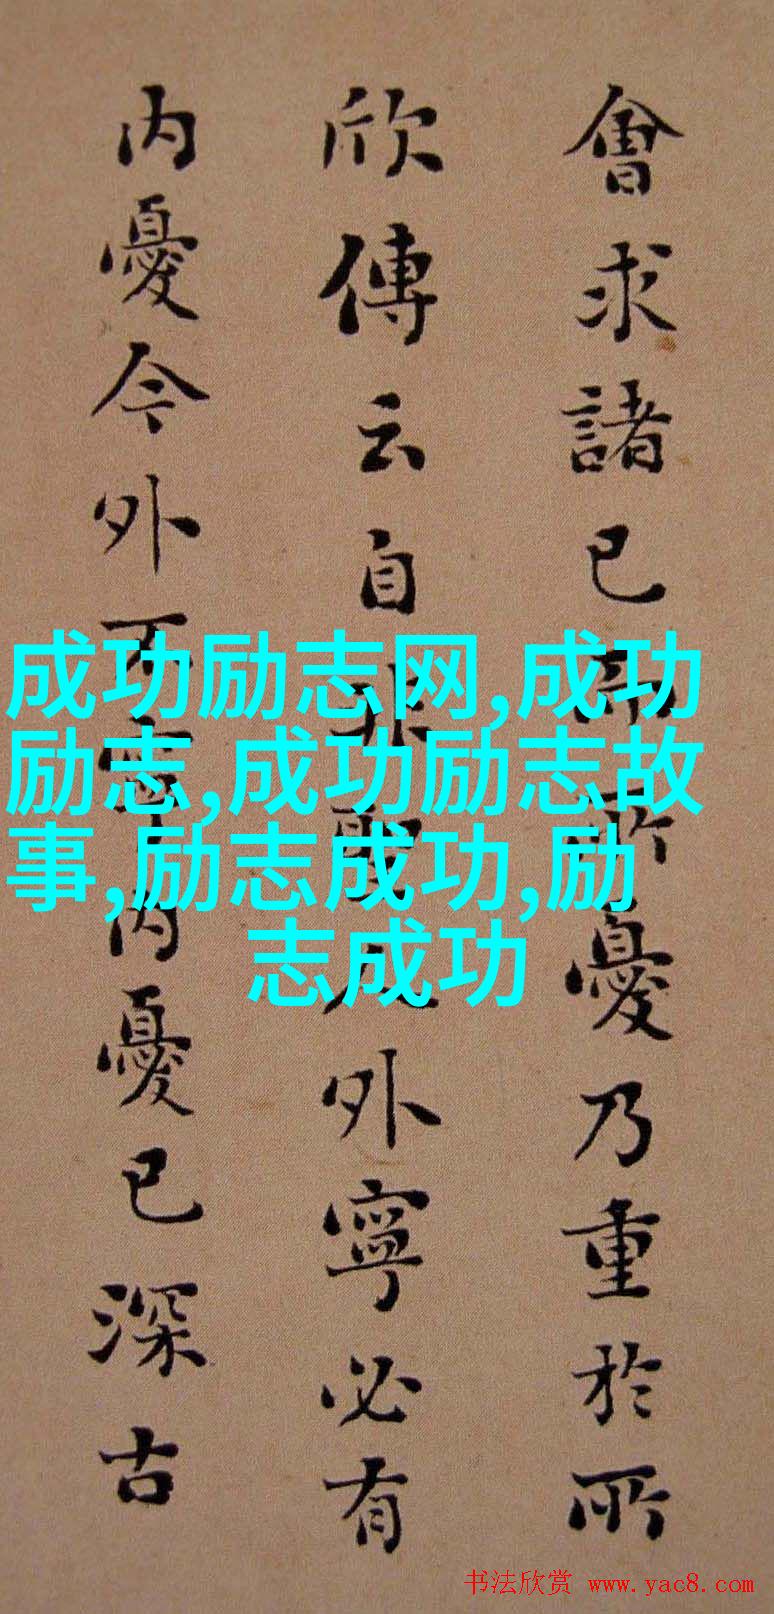 會求諸己而所憂乃重於所
欣傳云自非聖人外寧必有
内憂今外不寧内憂已深古
成功励志网,成功
励志,成功励志故
事,励志成功,励
志成功
书法欣赏 www.yac8.com